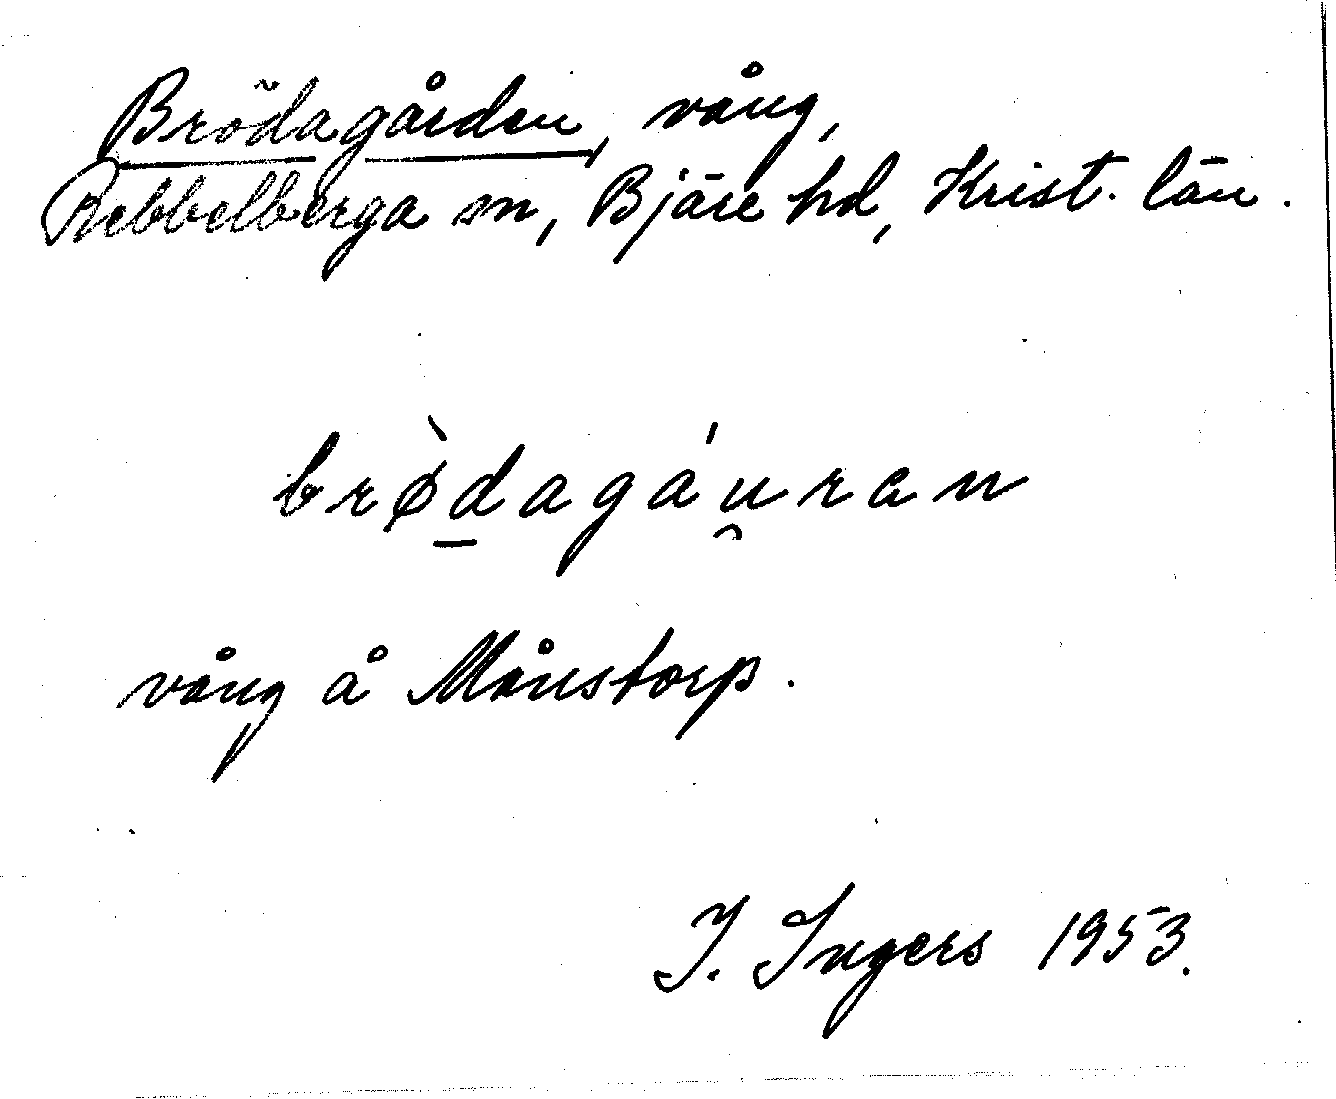 Brödagården, vång,
Rebbelberga sn, Bjäre hd, Krist. län.
brø̀dagáu̯ran
vång å Månstorp.
I. Ingers 1953.